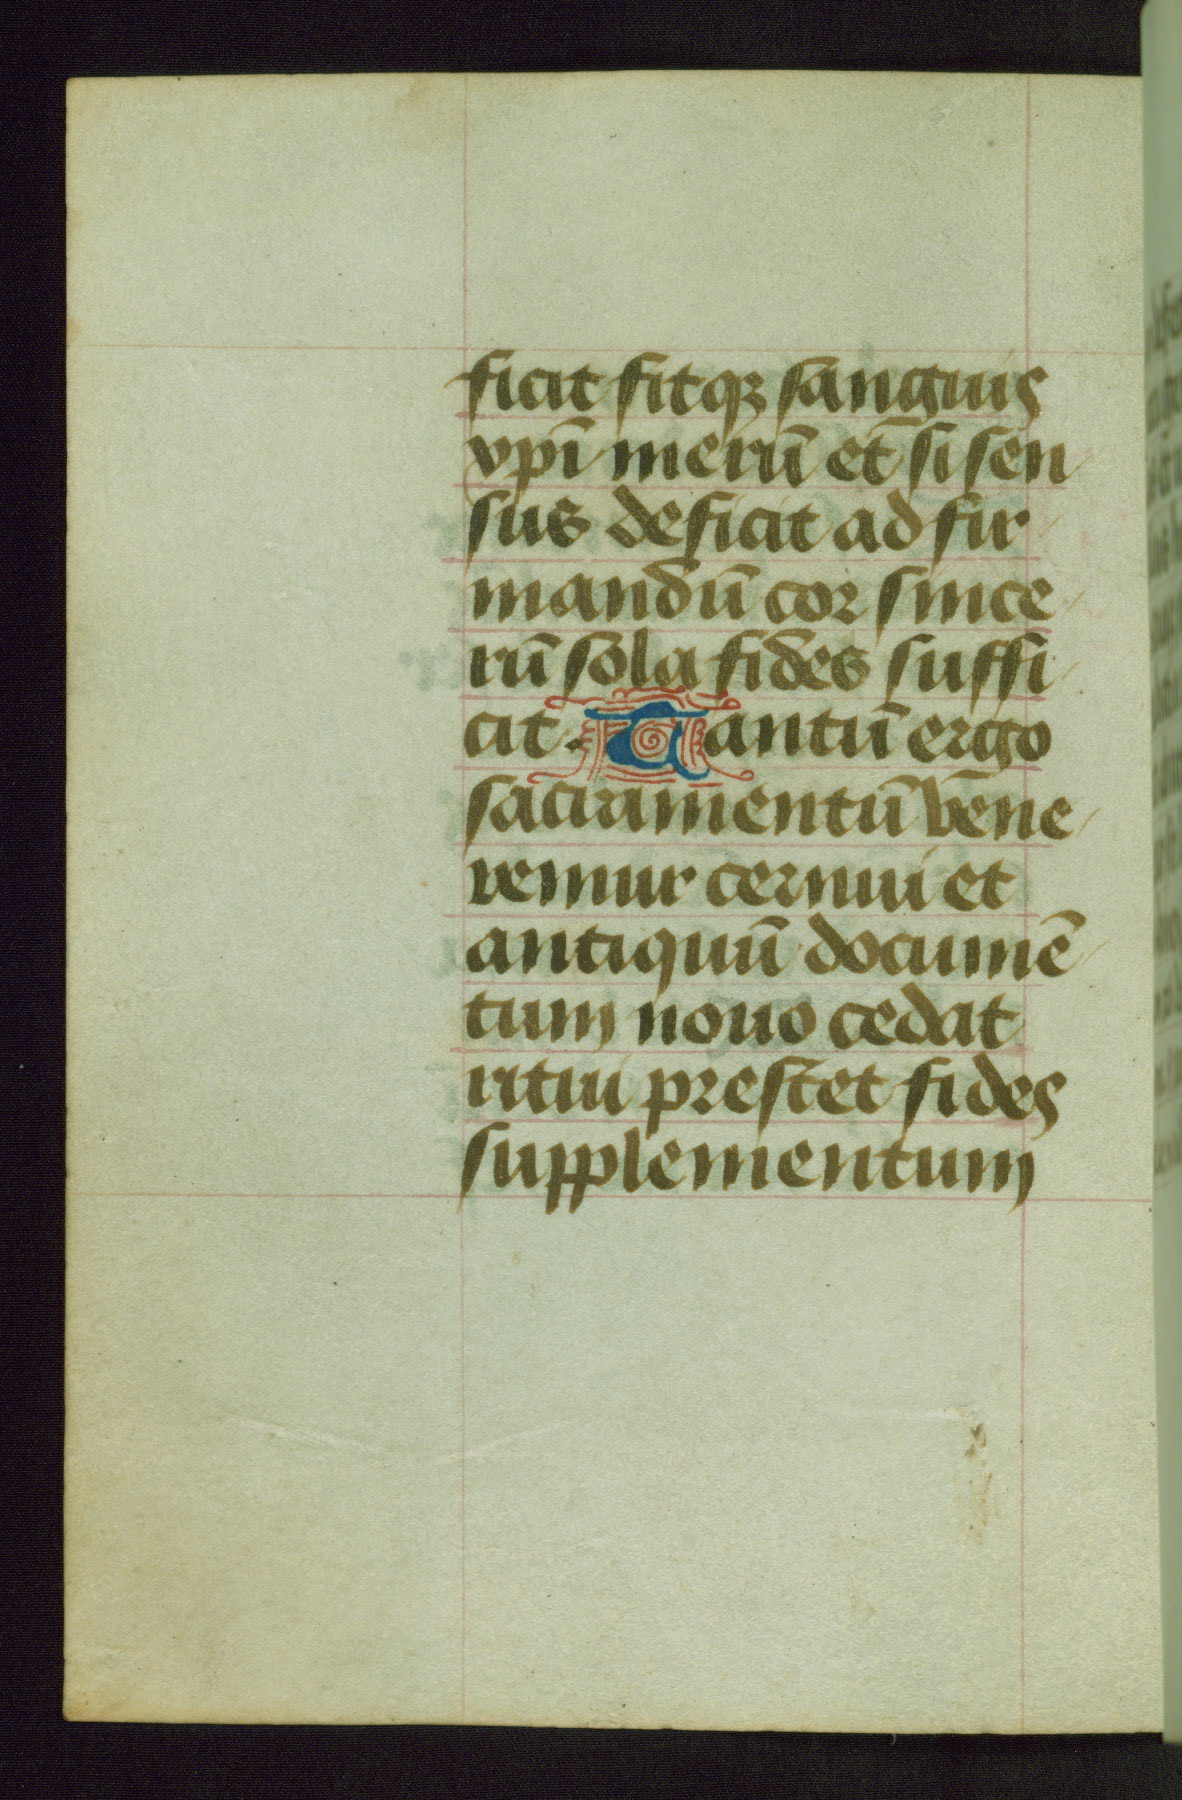 ficit fitqꝫ sanguis
xpī merū et si sen
sus deficit ad fir
mandū cor since
rū sola fides suffi
cit. Tantū ergo
sacramentū vene
remur cernui et
antiquū documē
tum nouo cedat
ritui prestet fides
supplementum